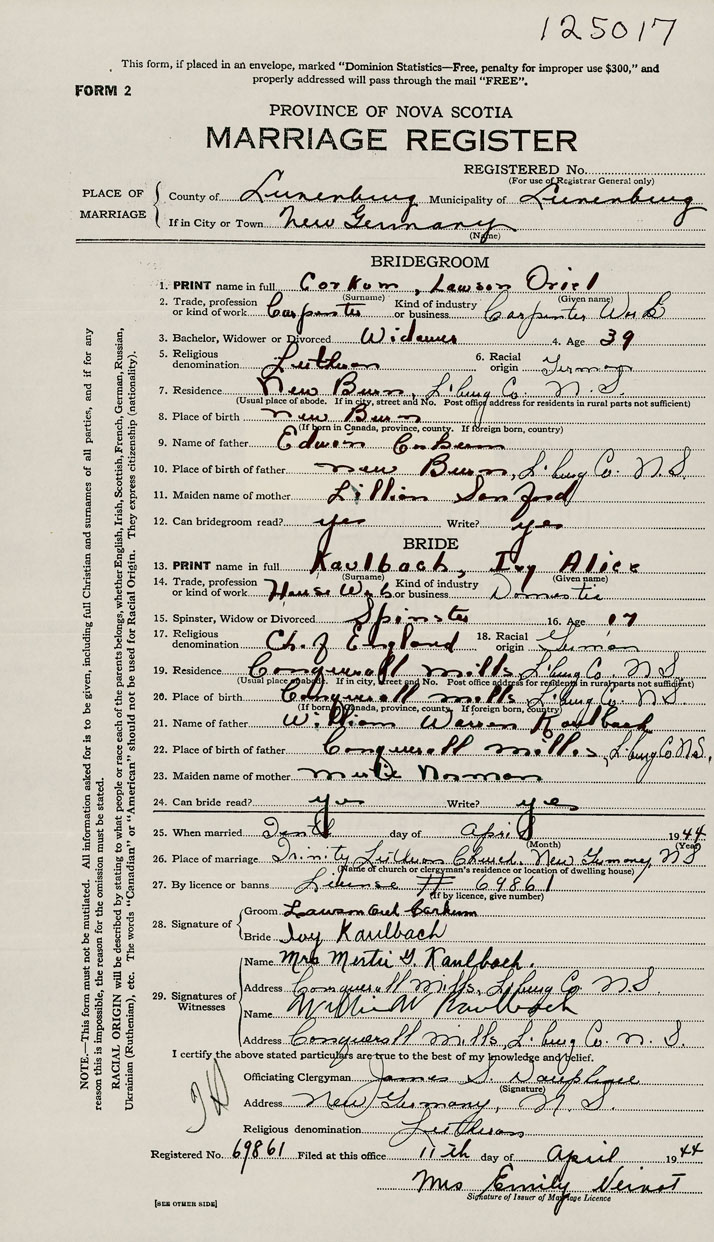 125017
This form, if placed in an envelope, marked "Dominion Statistics—Free, penalty for improper use $300," and
properly addressed will pass through the mail "FREE".
FORM 2
PROVINCE OF NOVA SCOTIA
MARRIAGE REGISTER
REGISTERED No.
(For use of Registrar General only)
PLACE OF MARRIAGE
County of Lunenburg Municipality of Lunenburg
If in City or Town New Germany
(Name)
BRIDEGROOM
1. PRINT name in full Corkum, Lawson Oriel
(Surname) (Given name)
2. Trade, profession or kind of work Carpenter Kind of industry or business Carpenter Work
3. Bachelor, Widower or Divorced Widower 4. Age 39
5. Religious denomination Lutheran 6. Racial origin German
7. Residence New Burn, L'burg Co. N.S.
(Usual place of abode. If in city, street and No. Post office address for residents in rural parts not sufficient)
8. Place of birth New Burn
(If born in Canada, province, county. If foreign born, country)
9. Name of father Edwin Corkum
10. Place of birth of father New Burn, L'burg Co. N.S.
11. Maiden name of mother Lillian Sanford
12. Can bridegroom read? yes Write? yes
BRIDE
13. PRINT name in full Kaulbach, Ivy Alice
(Surname) (Given name)
14. Trade, profession or kind of work House Work Kind of industry or business Domestic
15. Spinster, Widow or Divorced Spinster 16. Age 17
17. Religious denomination Ch. of England 18. Racial origin German
19. Residence Conquerall Mills, L'burg Co. N.S.
(Usual place of abode. If in city, street and No. Post office address for residents in rural parts not sufficient)
20. Place of birth Conquerall Mills L'burg Co. N.S.
(If born in Canada, province, county. If foreign born, country)
21. Name of father William Warren Kaulbach
22. Place of birth of father Conquerall Mills, L'burg Co. N.S.
23. Maiden name of mother Norman
24. Can bride read? yes Write? yes
25. When married Tenth day of April 1944
(Month) (Year)
26. Place of marriage Trinity Lutheran Church, New Germany NS
(Name of church or clergyman's residence or location of dwelling house)
27. By licence or banns License # 69861
(If by licence, give number)
28. Signature of
Groom Lawson Oriel Corkum
Bride Ivy Kaulbach
29. Signatures of Witnesses
Name Mrs Mertie G. Kaulbach.
Address Conquerall Mills, L'burg Co. N.S.
Name Kaulbach
Address Conquerall Mills, L'burg Co. N. S.
I certify the above stated particulars are true to the best of my knowledge and belief.
Officiating Clergyman James S. Dauphinee
(Signature)
Address New Germany, N. S.
Religious denomination Lutheran
Registered No. 69861 Filed at this office 11th day of April 1944
Mrs Emily Veinot
Signature of Issuer of Marriage Licence
[SEE OTHER SIDE]
NOTE.—This form must not be mutilated. All information asked for is to be given, including full Christian and surnames of all parties, and if for any
reason this is impossible, the reason for the omission must be stated.
RACIAL ORIGIN will be described by stating to what people or race each of the parents belongs, whether English, Irish, Scottish, French, German, Russian,
Ukrainian (Ruthenian), etc. The words "Canadian" or "American" should not be used for Racial Origin. They express citizenship (nationality).